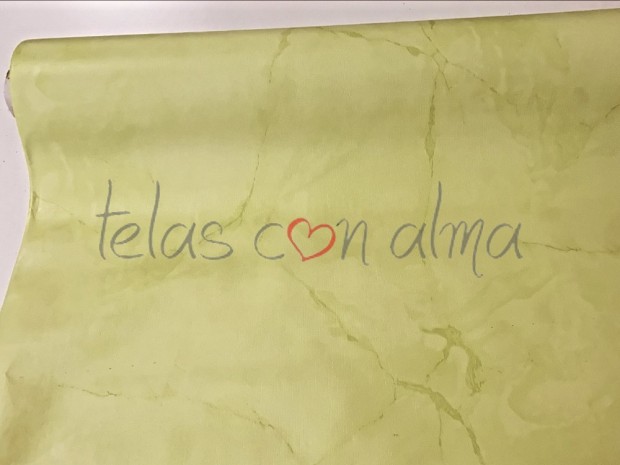 telas con alma